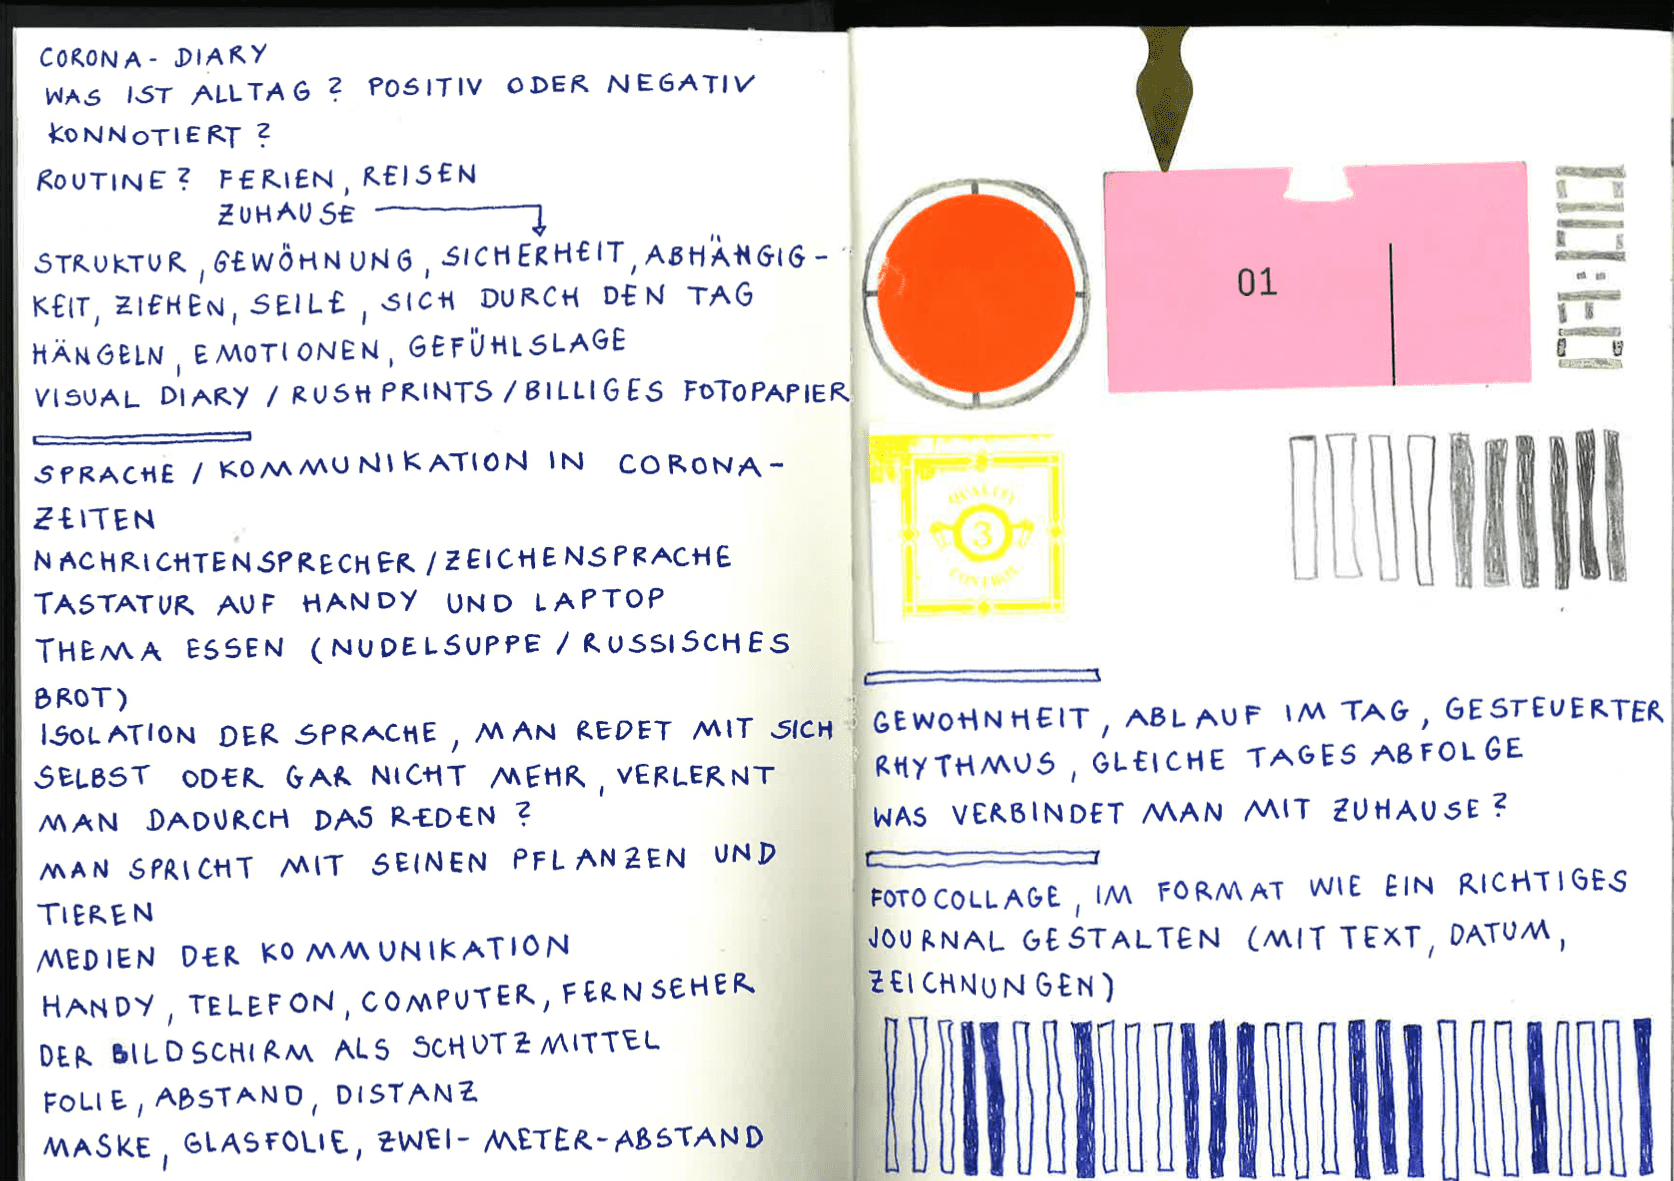 CORONA- DIARY
WAS IST ALLTAG? POSITIV ODER NEGATIV
KONNOTIERT?
ROUTINE? FERIEN, REISEN
ZUHAUSE
STRUKTUR, GEWÖHNUNG, SICHERHEIT, ABHÄNGIG-
KEIT, ZIEHEN, SEILE, SICH DURCH DEN TAG
HÄNGELN, EMOTIONEN, GEFÜHLSLAGE
VISUAL DIARY / RUSHPRINTS / BILLIGES FOTOPAPIER
SPRACHE / KOMMUNIKATION IN CORONA-
ZEITEN
NACHRICHTENSPRECHER / ZEICHENSPRACHE
TASTATUR AUF HANDY UND LAPTOP
THEMA ESSEN (NUDELSUPPE / RUSSISCHES
BROT)
ISOLATION DER SPRACHE, MAN REDET MIT SICH
SELBST ODER GAR NICHT MEHR, VERLERNT
MAN DADURCH DAS REDEN?
MAN SPRICHT MIT SEINEN PFLANZEN UND
TIEREN
MEDIEN DER KOMMUNIKATION
HANDY, TELEFON, COMPUTER, FERNSEHER
DER BILDSCHIRM ALS SCHUTZMITTEL
FOLIE, ABSTAND, DISTANZ
MASKE, GLASFOLIE, ZWEI-METER-ABSTAND
01
QUALITY
3
CONTROL
GEWOHNHEIT, ABLAUF IM TAG, GESTEUERTER
RHYTHMUS, GLEICHE TAGES ABFOLGE
WAS VERBINDET MAN MIT ZUHAUSE?
FOTOCOLLAGE, IM FORMAT WIE EIN RICHTIGES
JOURNAL GESTALTEN (MIT TEXT, DATUM,
ZEICHNUNGEN)